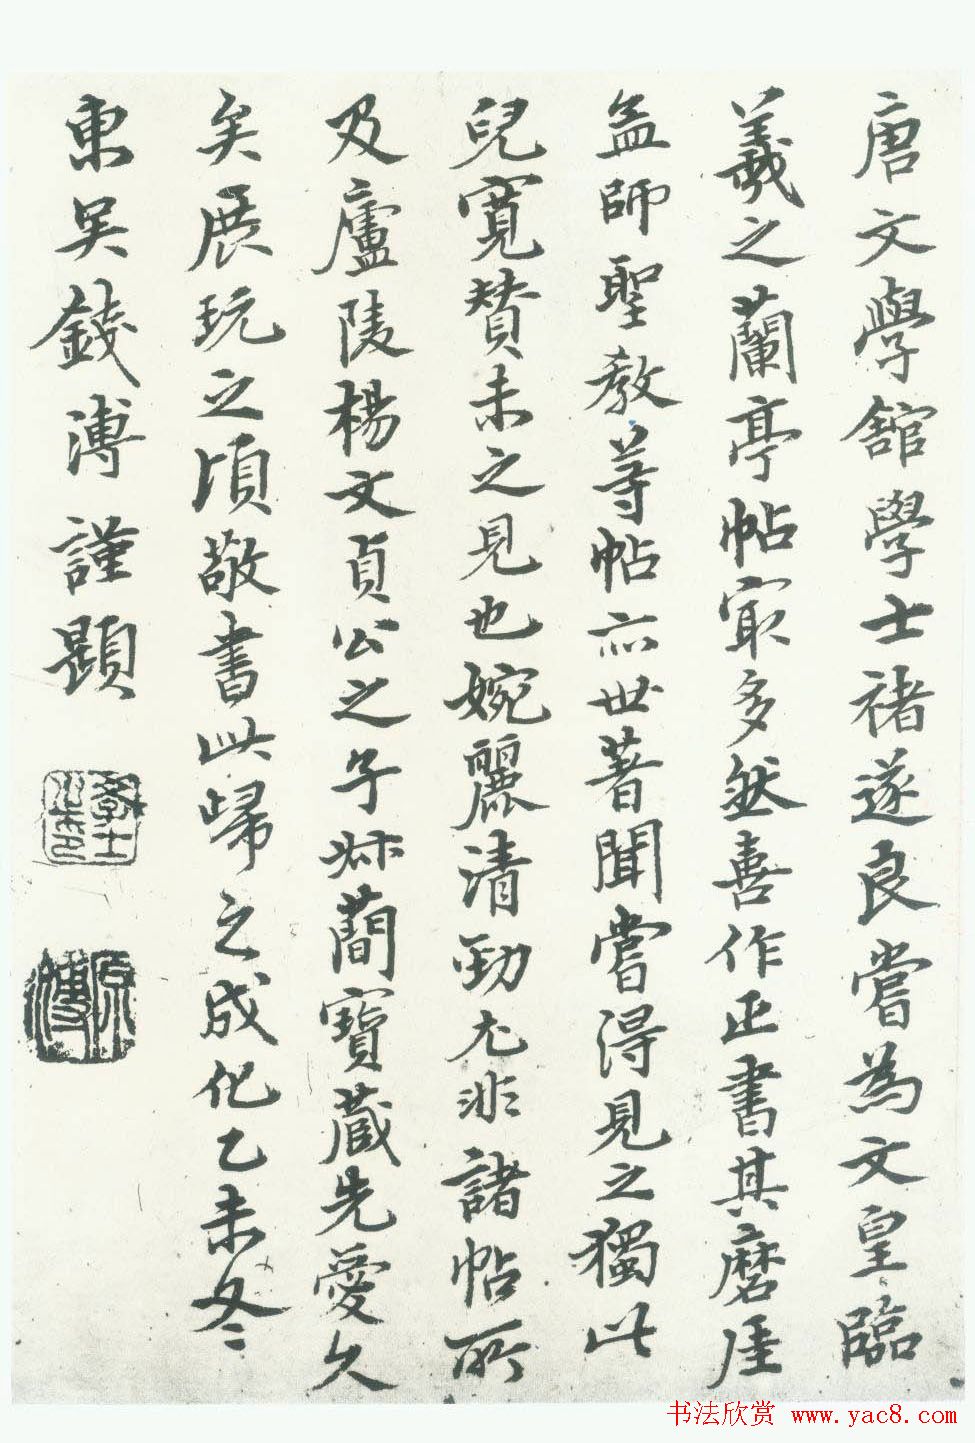 唐文學舘學士褚遂良嘗為文皇臨
羲之蘭亭帖冣多然喜作正書其磨崖
孟師聖教等帖亦世著聞嘗得見之獨此
兒寬贊未之見也婉麗清勁尤非諸帖所
及廬陵楊文貞公之子叔蕳寶藏先愛久
矣展玩之頃敬書此歸之成化乙未冬
東吴錢溥謹題
學士之印
原溥
书法欣赏 www.yac8.com